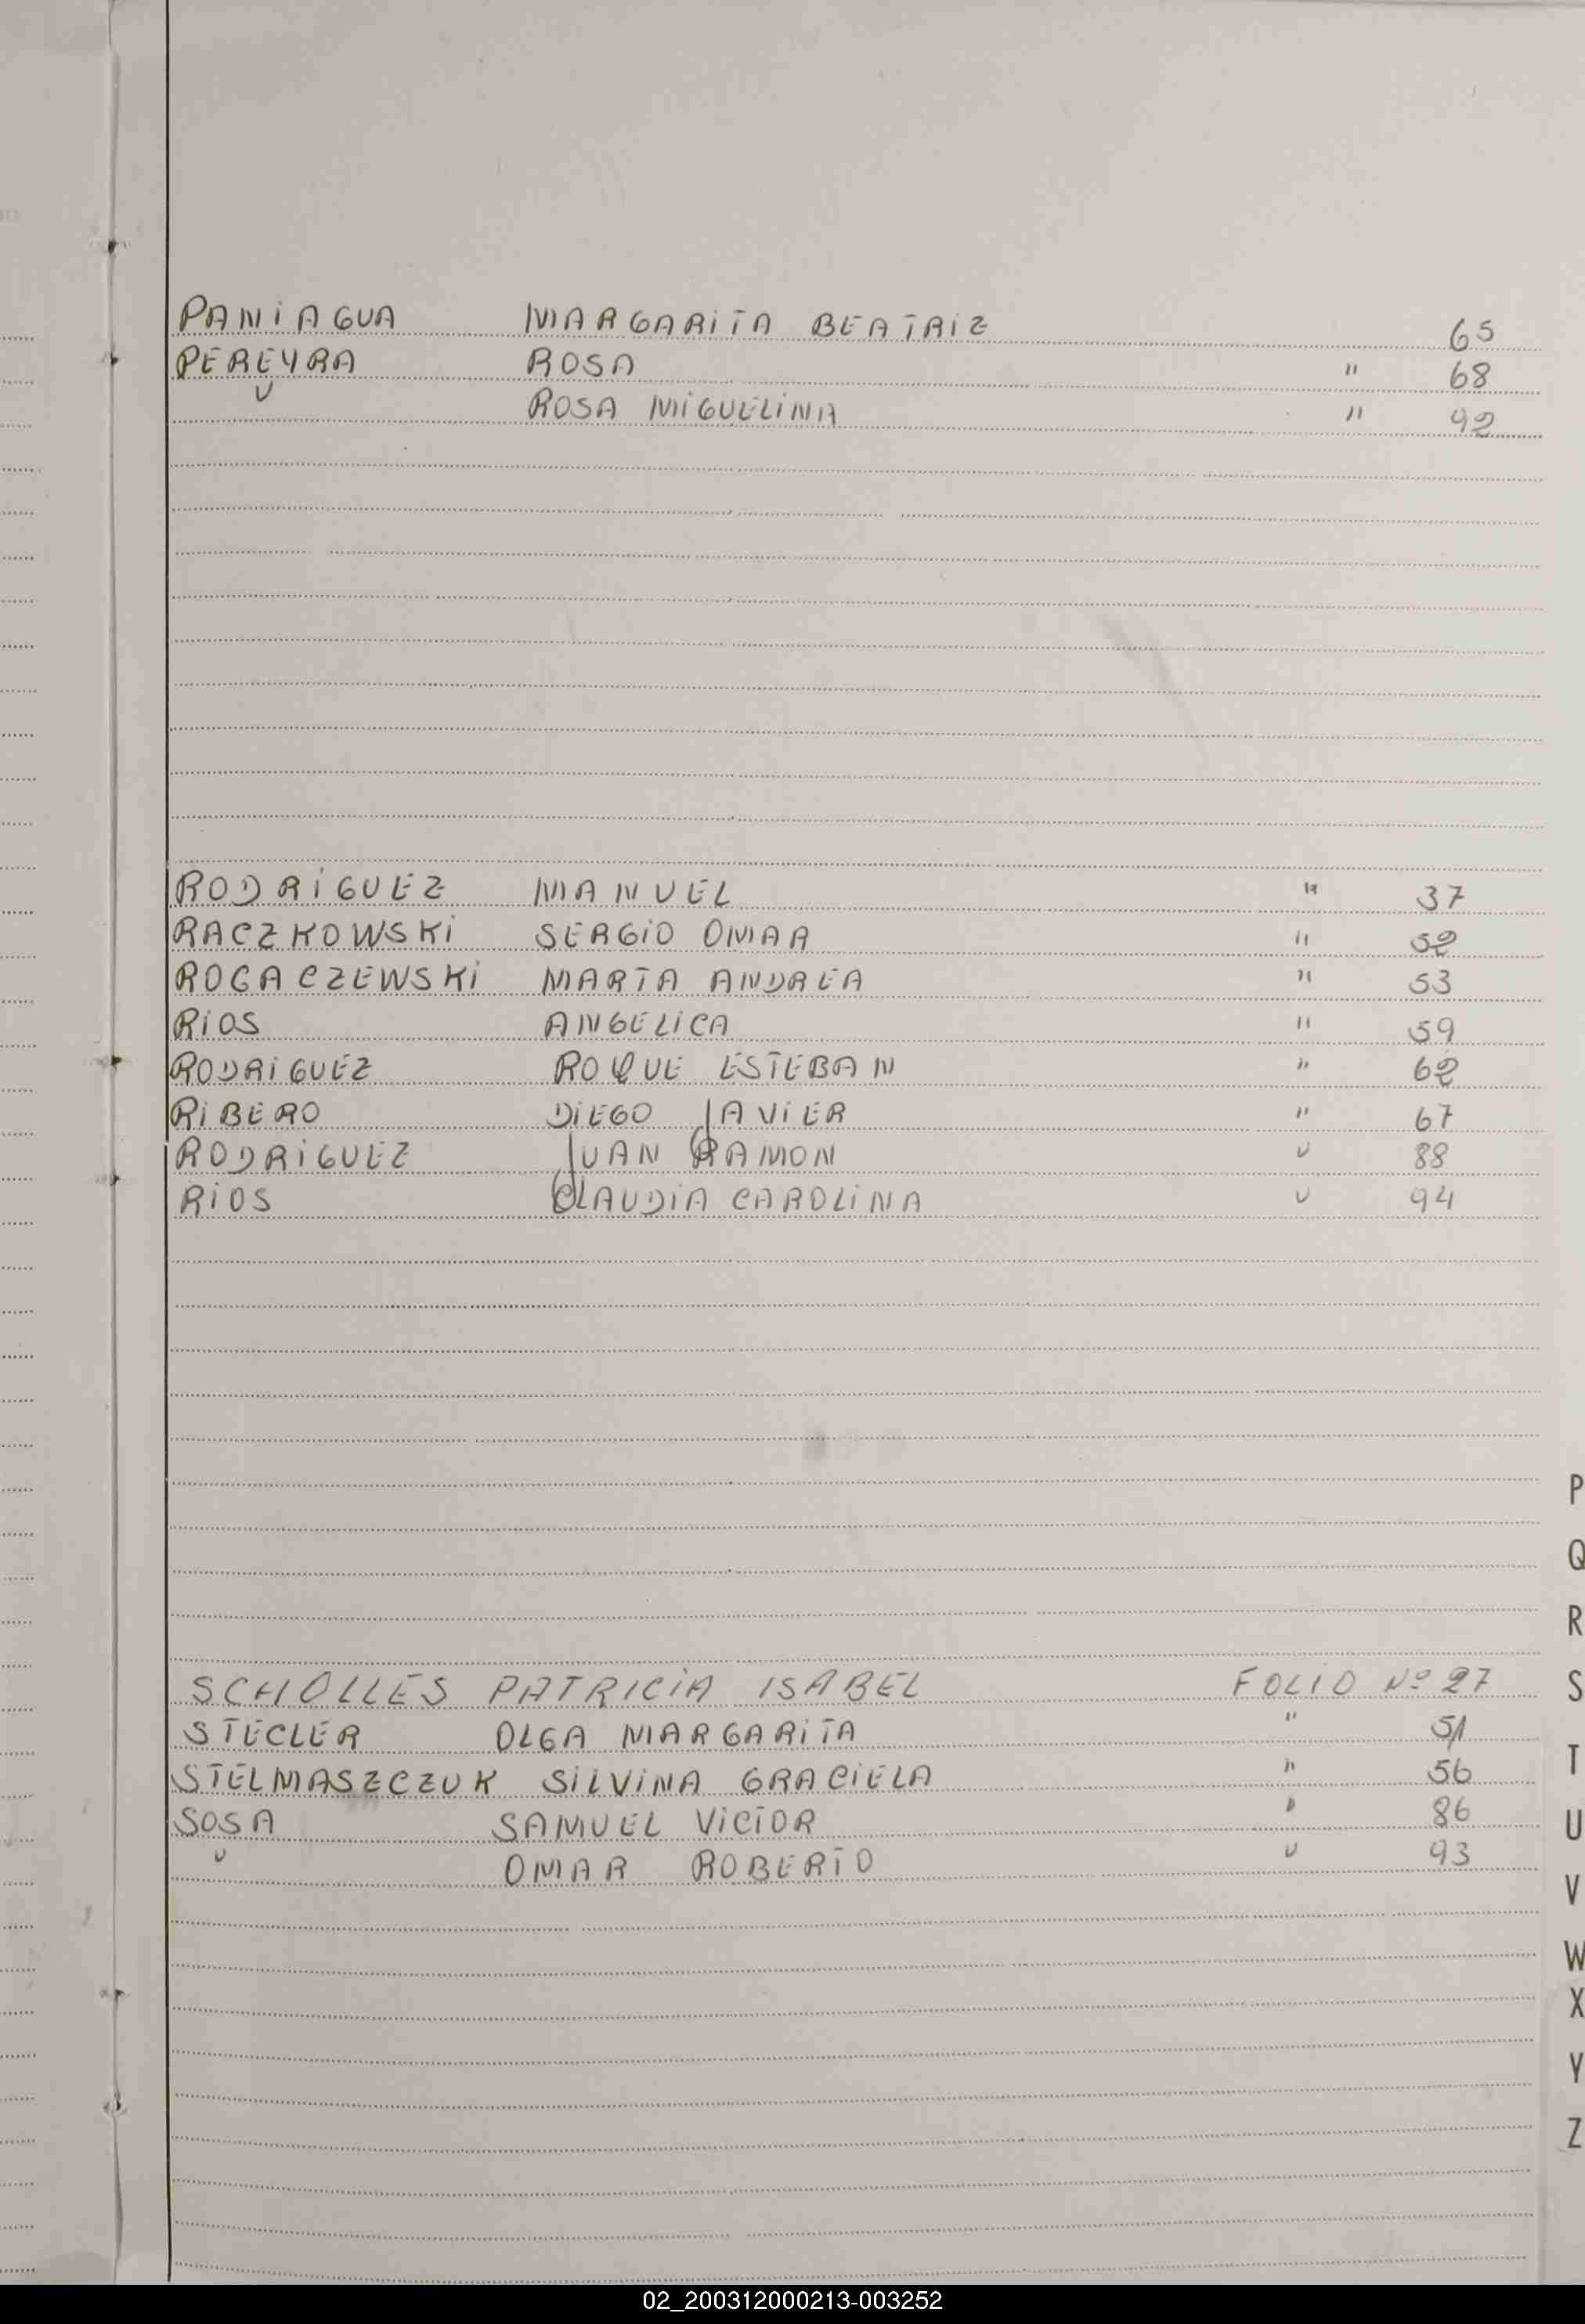 PANIAGUA MARGARITA BEATRIZ 65
PEREYRA ROSA " 68
" ROSA MIGUELINA " 92
RODRIGUEZ MANUEL " 37
RACZKOWSKI SERGIO OMAR " 52
ROGACZEWSKI MARTA ANDREA " 53
RIOS ANGELICA " 59
RODRIGUEZ ROQUE ESTEBAN " 62
RIBERO DIEGO JAVIER " 67
RODRIGUEZ JUAN RAMON " 88
RIOS CLAUDIA CAROLINA " 94
SCHOLLES PATRICIA ISABEL FOLIO Nº 27
STECLER OLGA MARGARITA " 51
STELMASZCZUK SILVINA GRACIELA " 56
SOSA SAMUEL VICTOR " 86
" OMAR ROBERTO " 93
P
Q
R
S
T
U
V
W
X
Y
Z
02_200312000213-003252